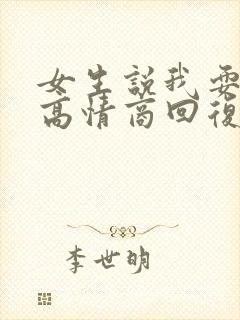 女生説我要
高情商回復
李世明